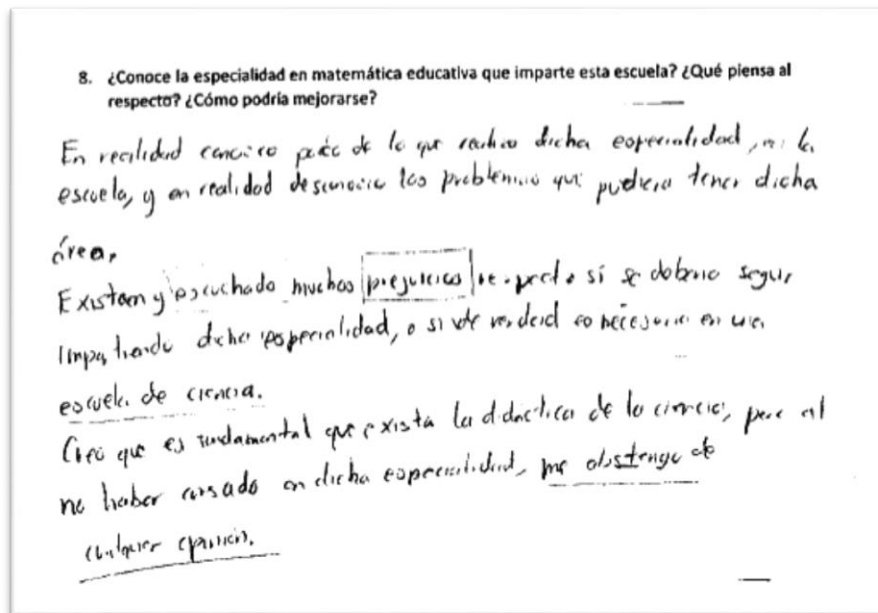 8. ¿Conoce la especialidad en matemática educativa que imparte esta escuela? ¿Qué piensa al
respecto? ¿Cómo podría mejorarse?
En realidad conozco poco de lo que realiza dicha especialidad, en la
escuela, y en realidad desconozco los problemas que pudiera tener dicha
área,
Existen y escuchado muchos prejuicios respecto si se debería seguir
impartiendo dicha especialidad, o si de verdad es necesario en una
escuela de ciencia.
Creo que es fundamental que exista la didáctica de la ciencia, pero al
no haber cursado en dicha especialidad, me abstengo de
cualquier opinión.